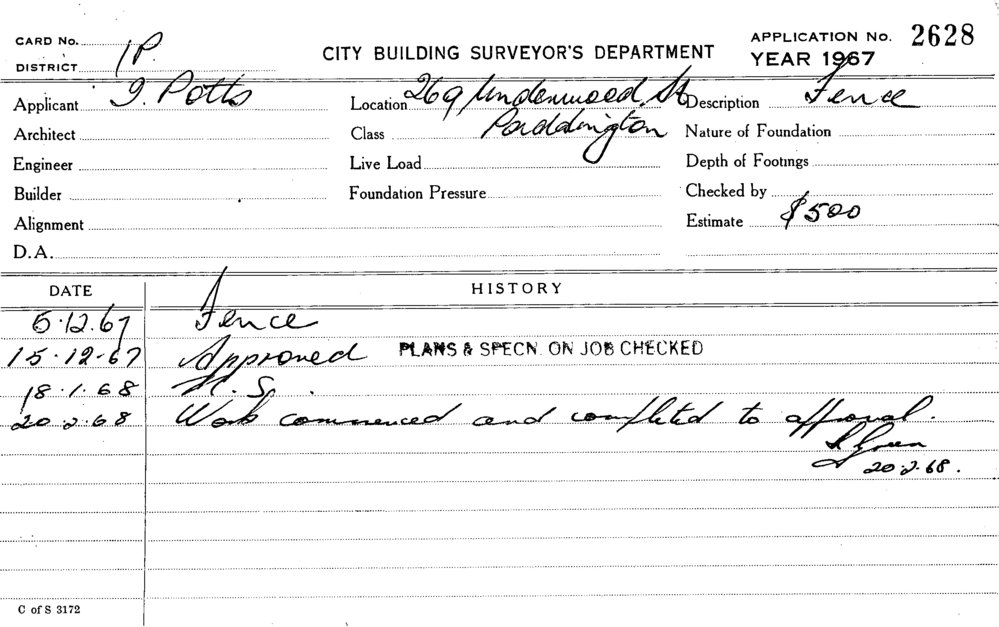 CARD No.
DISTRICT 1P
CITY BUILDING SURVEYOR'S DEPARTMENT
APPLICATION No. 2628
YEAR 1967
Applicant J. Potts
Location 269 Underwood St
Description Fence
Architect
Class Paddington
Nature of Foundation
Engineer
Live Load
Depth of Footings
Builder
Foundation Pressure
Checked by
Alignment
Estimate $500
D.A.
DATE HISTORY
6.12.67 Fence
15.12-67 Approved PLANS & SPECN. ON JOB CHECKED
18.1.68 N.S.
20.2.68 Work commenced and completed to approval.
Green
20.2.68.
C of S 3172